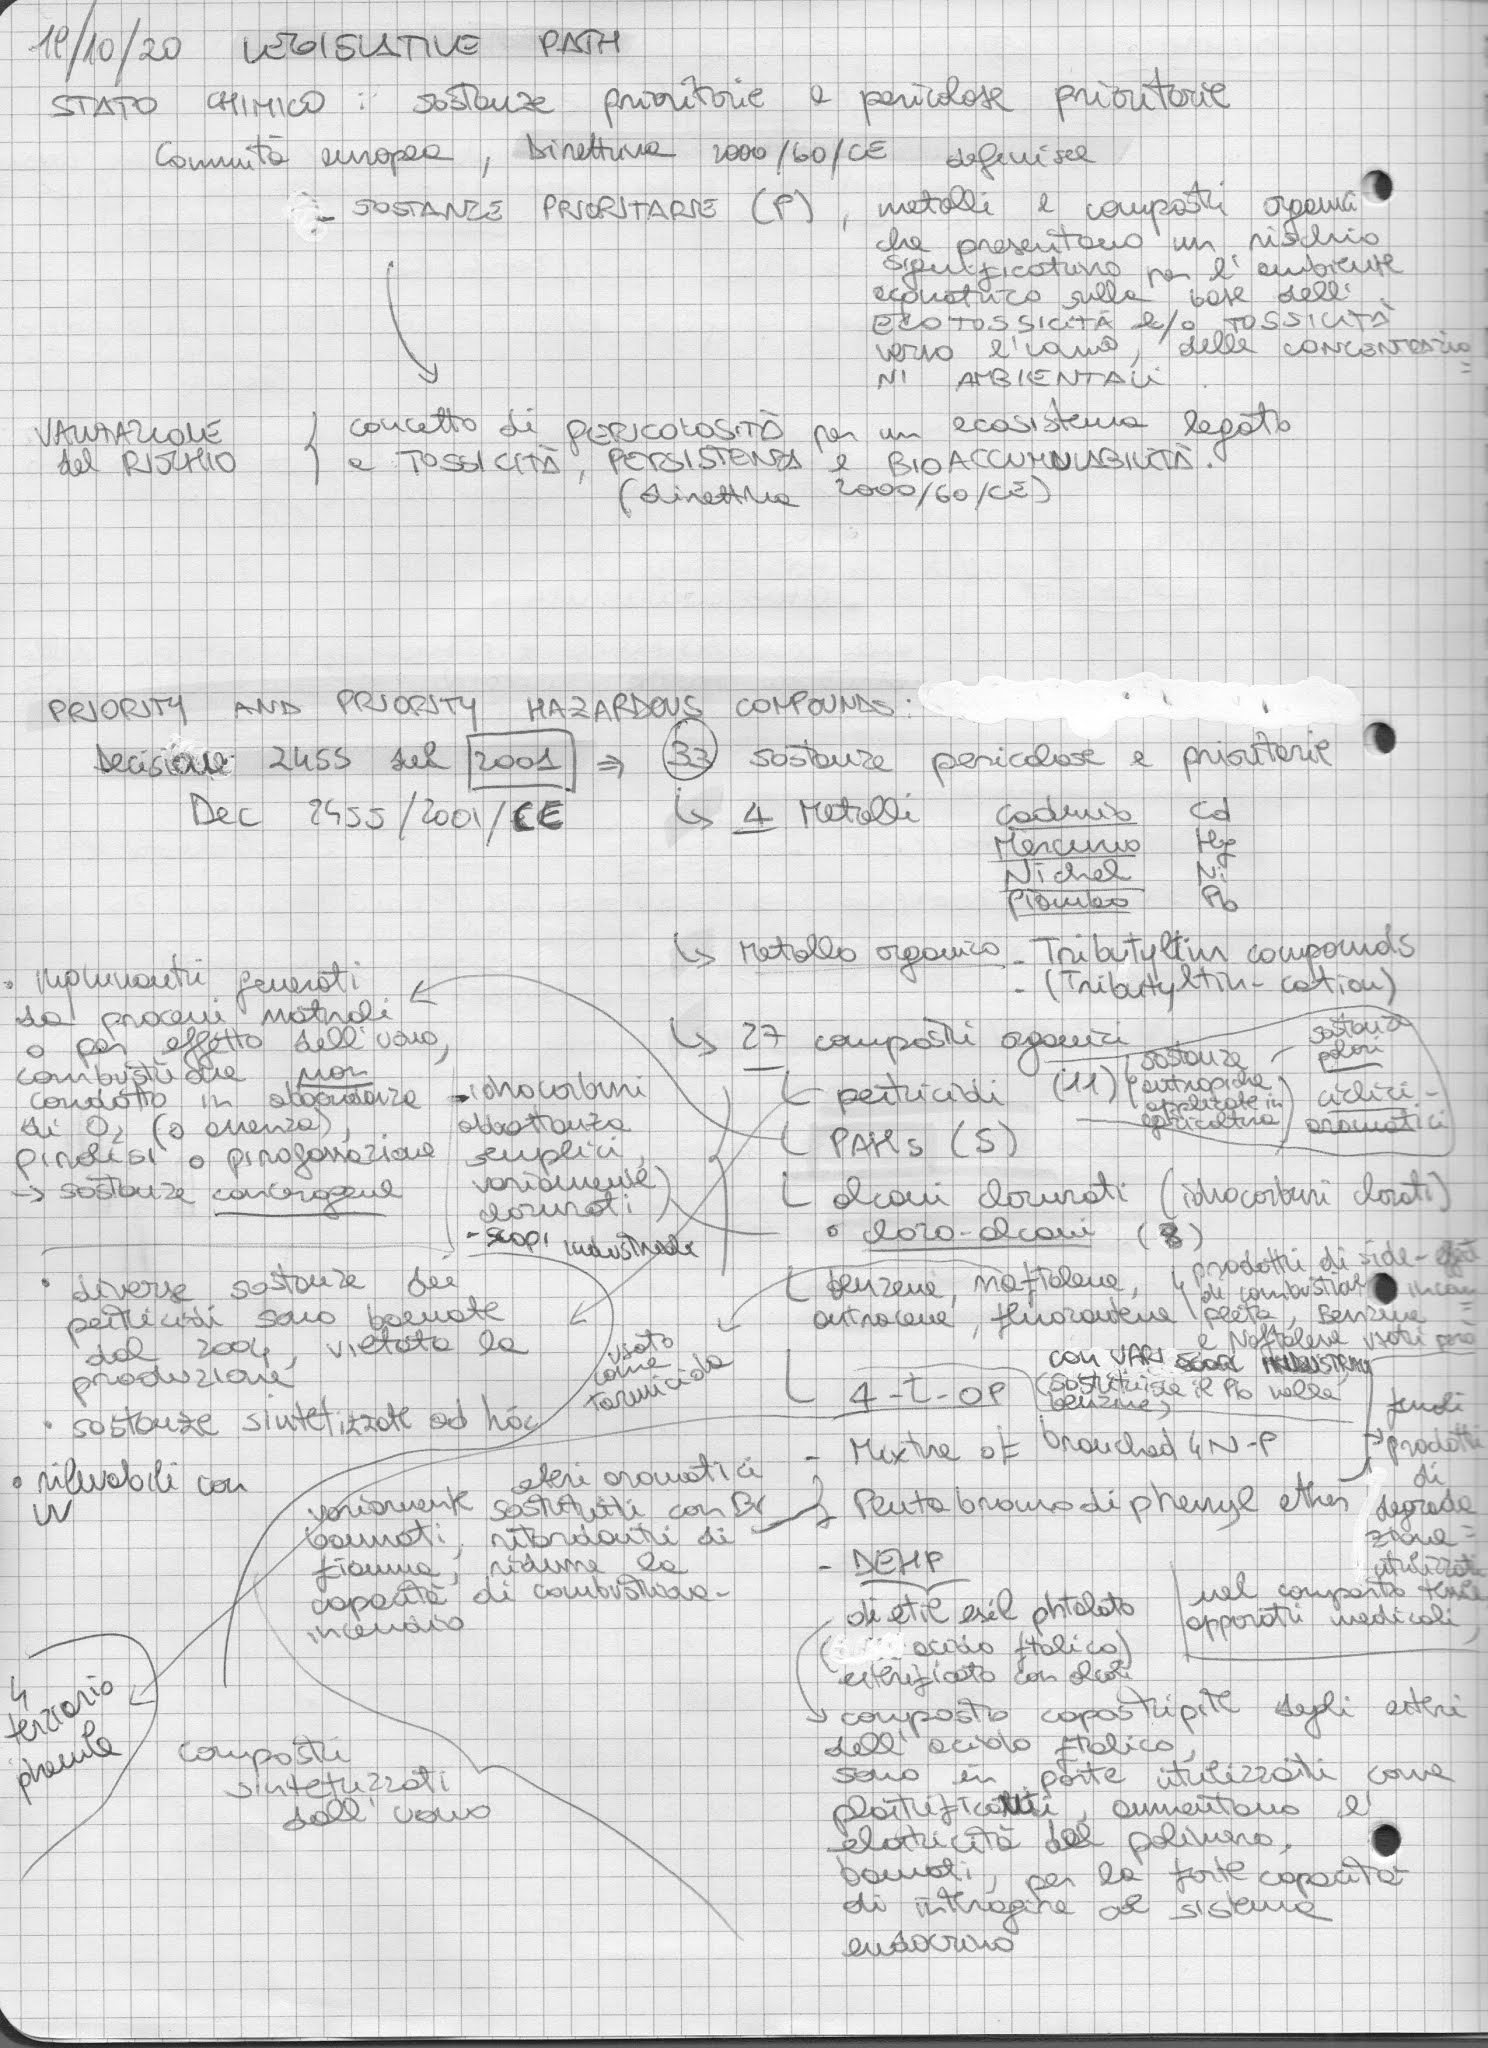 19/10/20 LEGISLATIVE PATH
STATO CHIMICO : sostanze prioritarie e pericolose prioritarie
Comunità europea, Direttiva 2000/60/CE definisce
- SOSTANZE PRIORITARIE (P), metalli e composti organici
che presentano un rischio
significativo per l'ambiente
acquatico sulla base dell'
ECOTOSSICITÀ e/o TOSSICITÀ
verso l'uomo, delle CONCENTRAZIO
NI AMBIENTALI.
VALUTAZIONE
del RISCHIO
concetto di PERICOLOSITÀ per un ecosistema legato
a TOSSICITÀ, PERSISTENZA e BIOACCUMULABILITÀ.
(direttiva 2000/60/CE)
PRIORITY AND PRIORITY HAZARDOUS COMPOUNDS:
Decisione 2455 del 2001 ⇒ 33 sostanze pericolose e prioritarie
Dec 2455/2001/CE
↳ 4 Metalli Cadmio Cd
Mercurio Hg
Nichel Ni
Piombo Pb
↳ Metallo organico - Tributyltin compounds
- (Tributyltin-cation)
↳ 27 composti organici
pesticidi (11)
sostanze
antropiche
applicate in
agricoltura
sostanze
polari
ciclici -
aromatici
PAHs (5)
alcani clorurati (idrocarburi clorati)
• cloro-alcani (8)
benzene, naftalene,
antracene, fluorantene
prodotti di side-
di combustione
Benzene
e Naftalene usati
con VARI SCOPI INDUSTRIALI
(sostituisce il Pb nella
benzina)
4-t-OP
- Mixture of branched 4N-P
Pentabromodiphenyl ether
fenoli
prodotti
di
degrada
zione =
utilizzati
nel comparto tessile
apparati medicali,
- DEHP
di etil esil phtalato
acido ftalico)
esterificato con alcoli
composto capostipite degli esteri
dell'acido ftalico,
sono in parte utilizzati come
plastificanti, aumentano l'
elasticità del polimero,
bannati, per la forte capacità
di interagire al sistema
endocrino
• inquinanti generati
da processi naturali
o per effetto dell'uomo,
combustione non
condotta in abbondanza
di O2 (o assenza),
pirolisi o pirogassazione
→ sostanze cancerogene
- idrocarburi
abbastanza
semplici,
variamente
clorurati
- scopi industriale
• diverse sostanze dei
pesticidi sono bannate
dal 2004, vietata la
produzione
• sostanze sintetizzate ad hoc
• rilevabili con
UV
usato
come
tarmicida
eteri aromatici
variamente sostituiti con Br
bannati, ritardanti di
fiamma, ridurre la
capacità di combustione -
incendio
4
terziario
composti
sintetizzati
dall'uomo